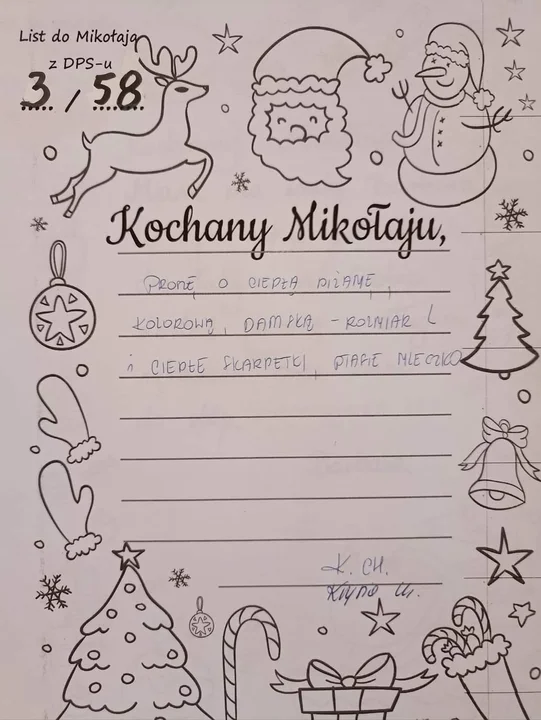 List do Mikołaja
z DPS-u
3 / 58
Kochany Mikołaju,
PROSZĘ O CIEPŁĄ PIŻAMĘ,
KOLOROWĄ, DAMSKĄ - ROZMIAR L
i CIEPŁE SKARPETKI, PTASIE MLECZKO
K. CH.